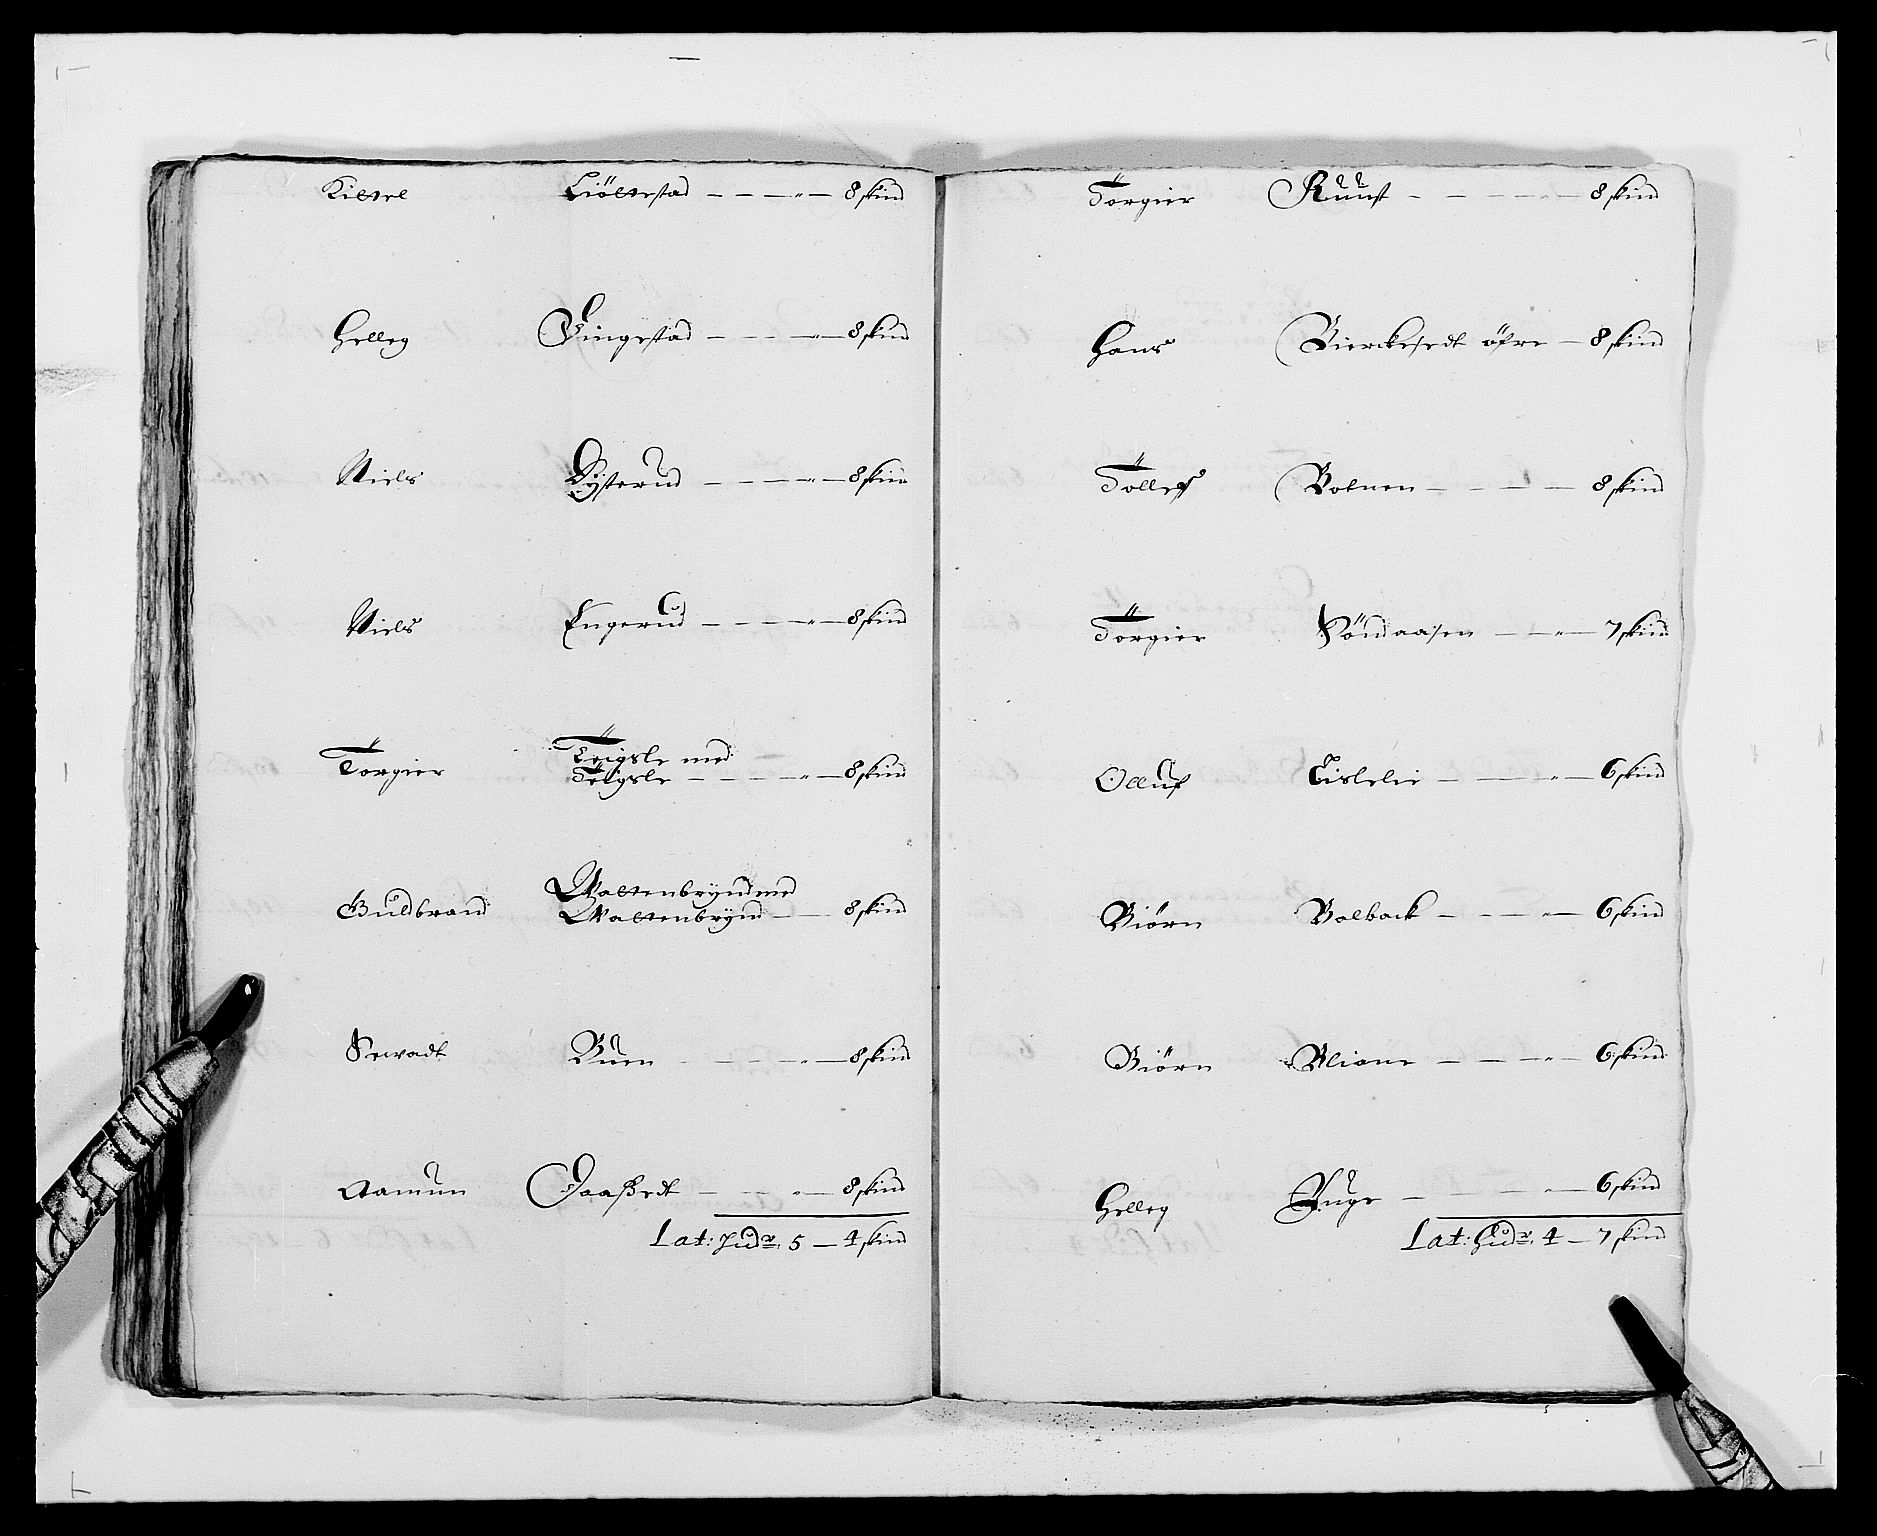 Kittel Liöttestad — — — „ — 8 skind
Helleg Ringestad — — — „ — 8 skind
Niels Dÿsterud — — — — „ — 8 skind
Niels Engerud — — — — „ — 8 skind
Törgier Töigsle med
Töigsle — — — — „ — 8 skind
Guldbrand Wattenbrÿnd med
Wattenbrÿnd — — 8 skind
Sewadt Buen — — — — „ — 8 skind
Aamun Jaaßedt — — — „ — 8 skind
Lat: Hudr. 5 — 4 skind
Törgier Ruust — — — — „ — 8 skind
Hans Bierckesedt öfre — 8 skind
Tollef Bolnen — — — — 8 skind
Törgier Söndaasen — — „ — 7 skind
Olluf Lislelie — — — „ — 6 skind
Biörn Balback — — — „ — 6 skind
Biörn Bliane — — — „ — 6 skind
Helleg Ruge — — — — „ — 6 skind
Lat: Hudr. 4 — 7 skind